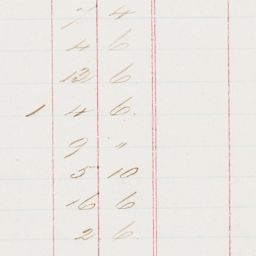 7 4
4 6
12 6
1 4 6.
9 "
5 10
16 6
2 6.